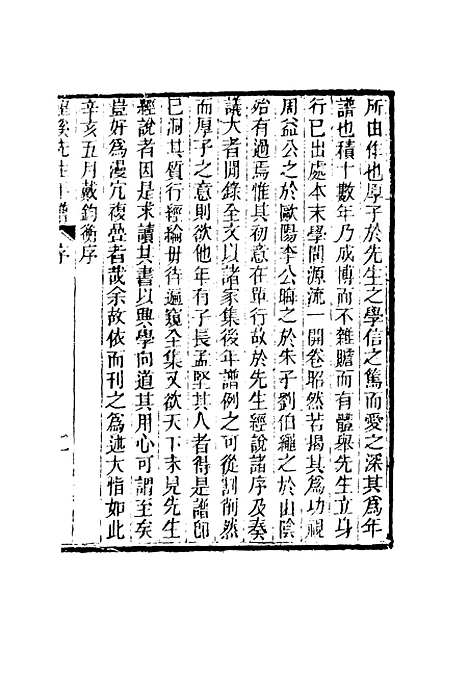 所由作也厚子於先生之學信之篤而愛之深其為年
譜也積十數年乃成博而不雜贍而有體舉先生立身
行己出處本末學問源流一開卷昭然若揭其為功視
周益公之於歐陽李公晦之於朱子劉伯繩之於山陰
殆有過焉惟其初意在單行故於先生經說諸序及奏
議大者閒錄全文以諸家集後年譜例之可從割削然
而厚子之意則欲他年有子長孟堅其人者得是譜卽
已洞其質行經綸毋待遍窺全集又欲天下未見先生
經說者因是求讀其書以典學向道其用心可謂至矣
豈好為漫冗複疊者哉余故依而刊之為述大恉如此
辛亥五月戴鈞衡序
望溪先生年譜 序 二